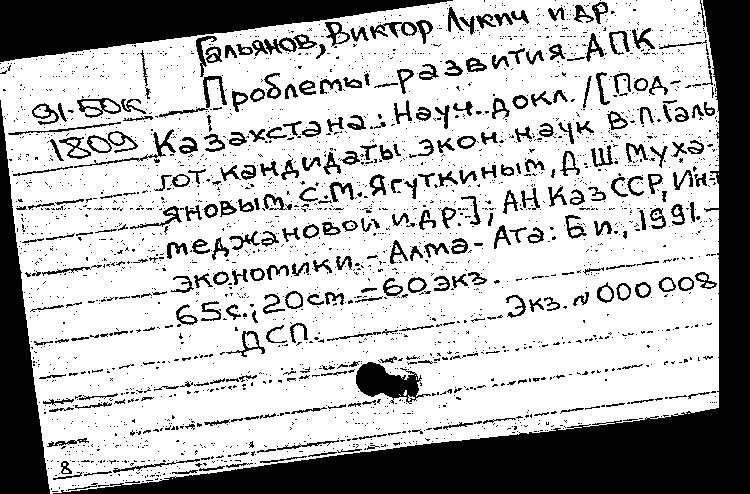 Гальянов, Виктор Лукич и др.
91-50к Проблемы развития АПК
1809 Казахстана: Науч. докл. / [Под-
гот. кандидаты экон. наук В.Л. Галь
яновым, С.М. Ягуткиным, Д.Ш. Муха-
меджановой и др.]; АН КазССР, Ин-т
экономики. - Алма-Ата: Б.и., 1991. -
65с.; 20см. - 60 экз.
ДСП. Экз. № 000 008
8